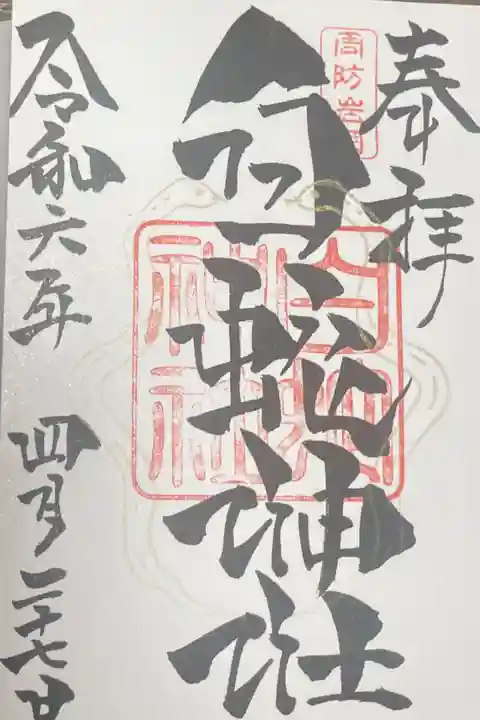 奉拝
周防岩国
白蛇神社
白蛇
神社
令和六年 四月二十七日